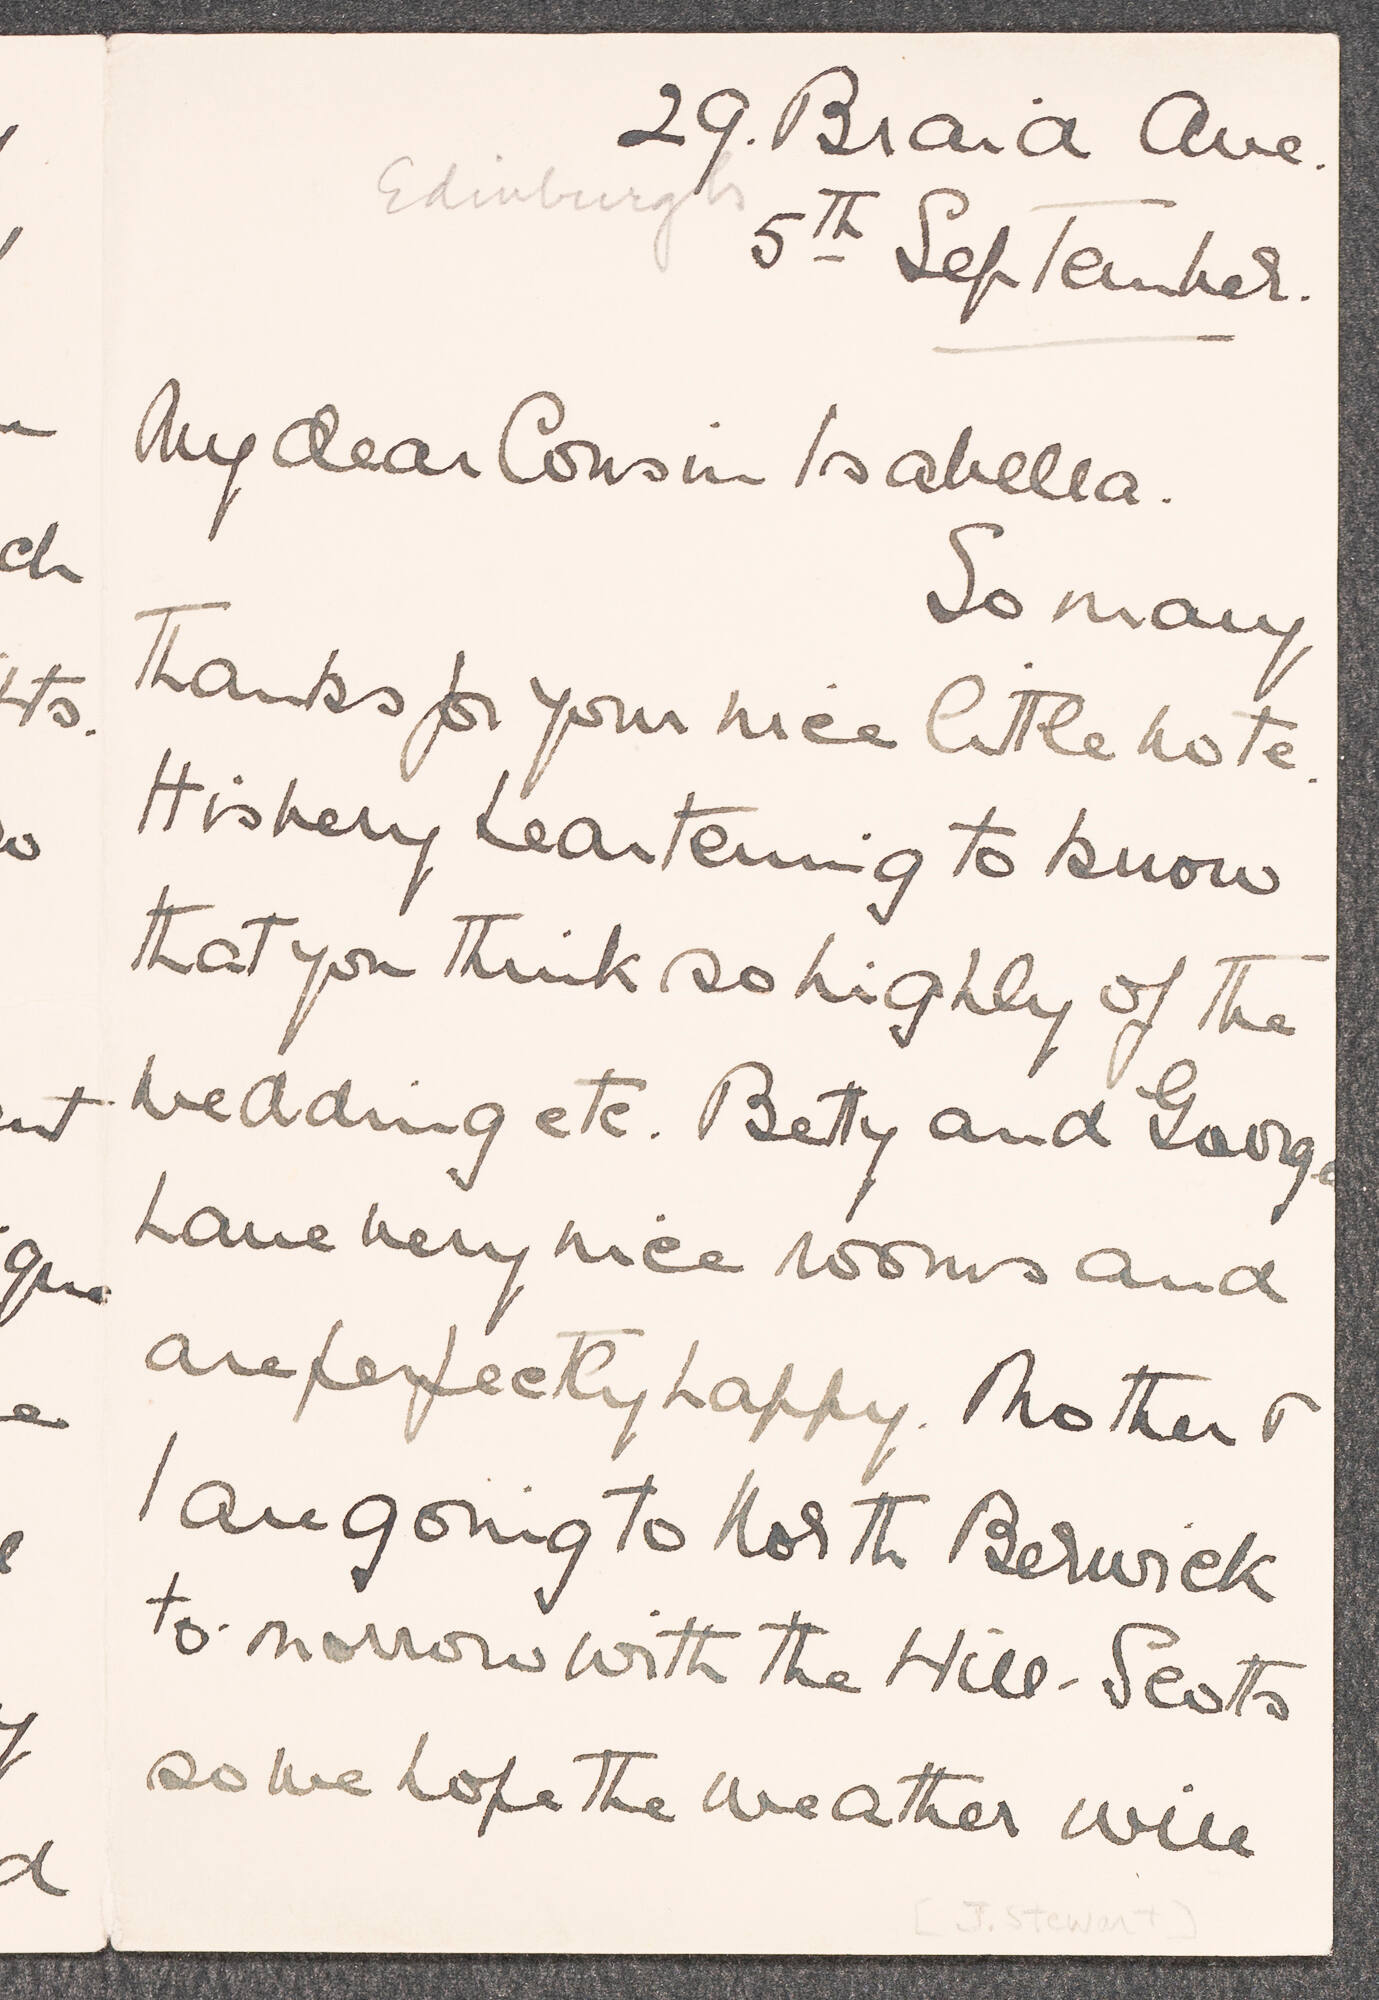 29. Braid Ave.
Edinburgh
5th September.
My dear Cousin Isabella.
So many
thanks for your nice little note.
It is very heartening to know
that you think so highly of the
wedding etc. Betty and George
have very nice rooms and
are perfectly happy. Mother &
I are going to North Berwick
to-morrow with the Hill-Scotts
so we hope the weather will
[J. Stewart]